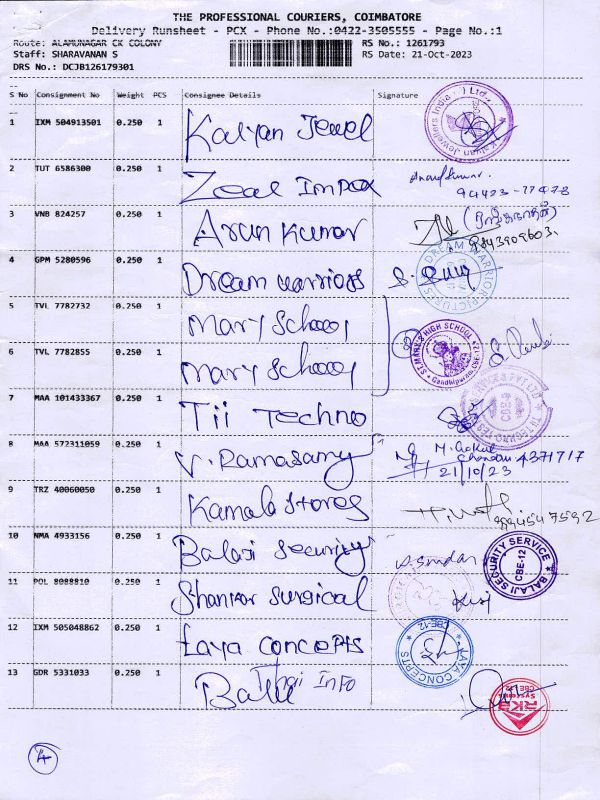 THE PROFESSIONAL COURIERS, COIMBATORE
Delivery Runsheet - PCX - Phone No.:0422-3505555 - Page No.:1
Route: ALAMUNAGAR CK COLONY RS No.: 1261793
Staff: SHARAVANAN S RS Date: 21-Oct-2023
DRS No.: DCJB126179301
S No Consignment No Weight PCS Consignee Details Signature
1 IXM 504913501 0.250 1 Kalyan Jewel
2 TUT 6586300 0.250 1 Zeal Impex
94423-77473
3 VNB 824257 0.250 1 Arun Kumar
9843909603.
4 GPM 5280596 0.250 1 Dream warriors
DREAM WARRIOR PICTURES
5 TVL 7782732 0.250 1 Mary School
6 TVL 7782855 0.250 1 Mary School
ST. MARY'S HIGH SCHOOL
7 MAA 101433367 0.250 1 Tii Techno
8 MAA 572311059 0.250 1 V. Ramasamy M. Gokul
21/10/23
9 TRZ 40060050 0.250 1 Kamala Stores
10 NMA 4933156 0.250 1 Balaji Security
BALAJI SECURITY SERVICE CBE-12
11 POL 8088810 0.250 1 Shankar Surgical
12 IXM 505048862 0.250 1 Laya Concepts
LAYA CONCEPTS CBE-12
13 GDR 5331033 0.250 1 Thai Info
RKB Systems CBE-12
4